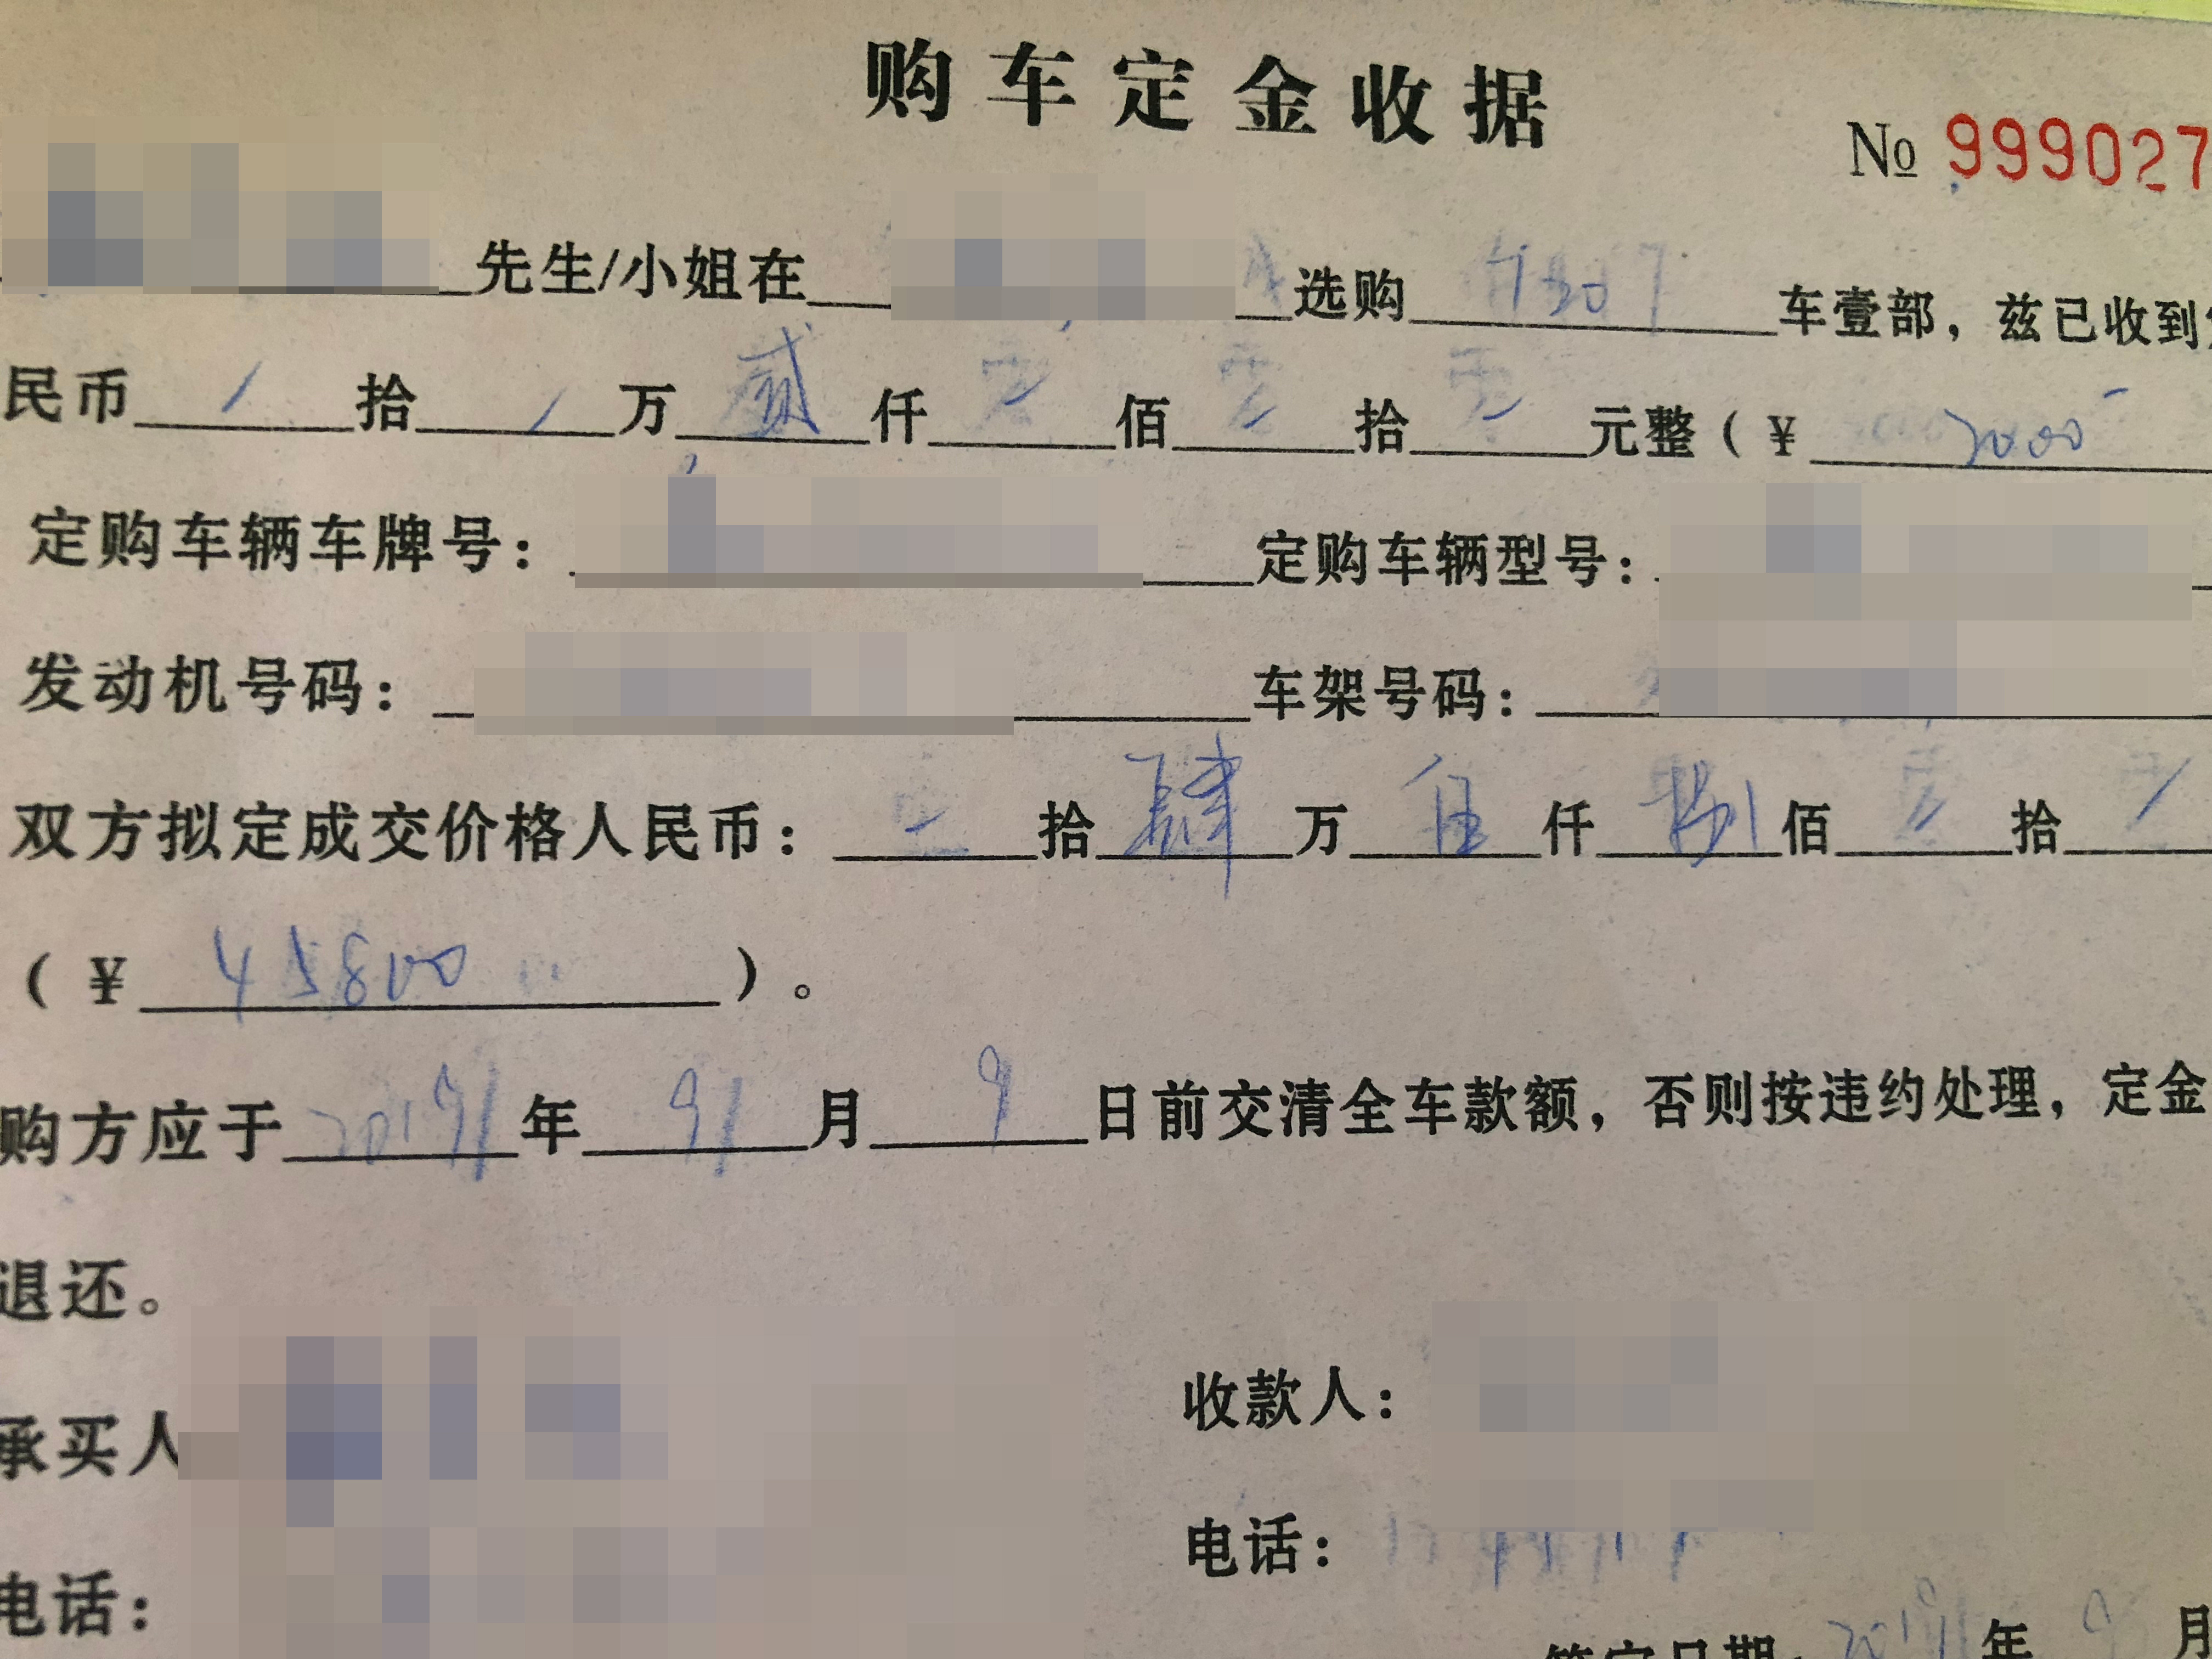 购车定金收据
№ 999027
先生/小姐在 选购 车壹部，兹已收到
民币 / 拾 / 万 贰 仟 零 佰 零 拾 零 元整（¥ 2000
定购车辆车牌号： 定购车辆型号：
发动机号码： 车架号码：
双方拟定成交价格人民币： 拾 肆 万 伍 仟 捌 佰 零 拾
（¥ 45800 ）。
购方应于 2019 年 9 月 9 日前交清全车款额，否则按违约处理，定金
退还。
承买人
收款人：
电话：
电话：
签定日期： 2019 年 9 月